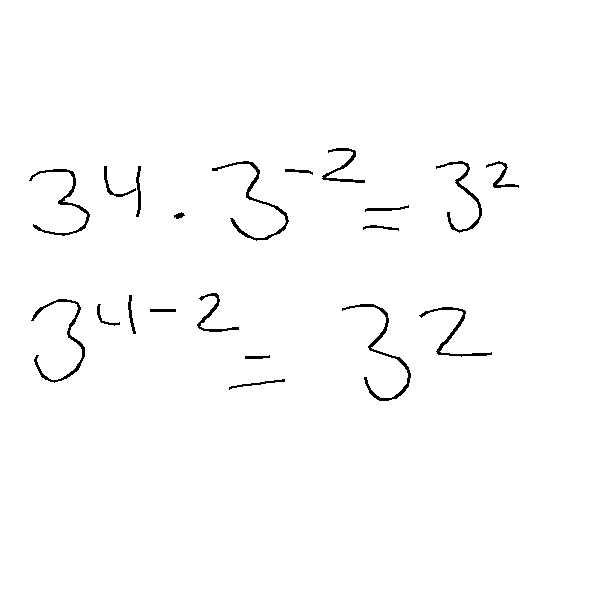 3⁴ · 3⁻² = 3²
3⁴⁻² = 3²